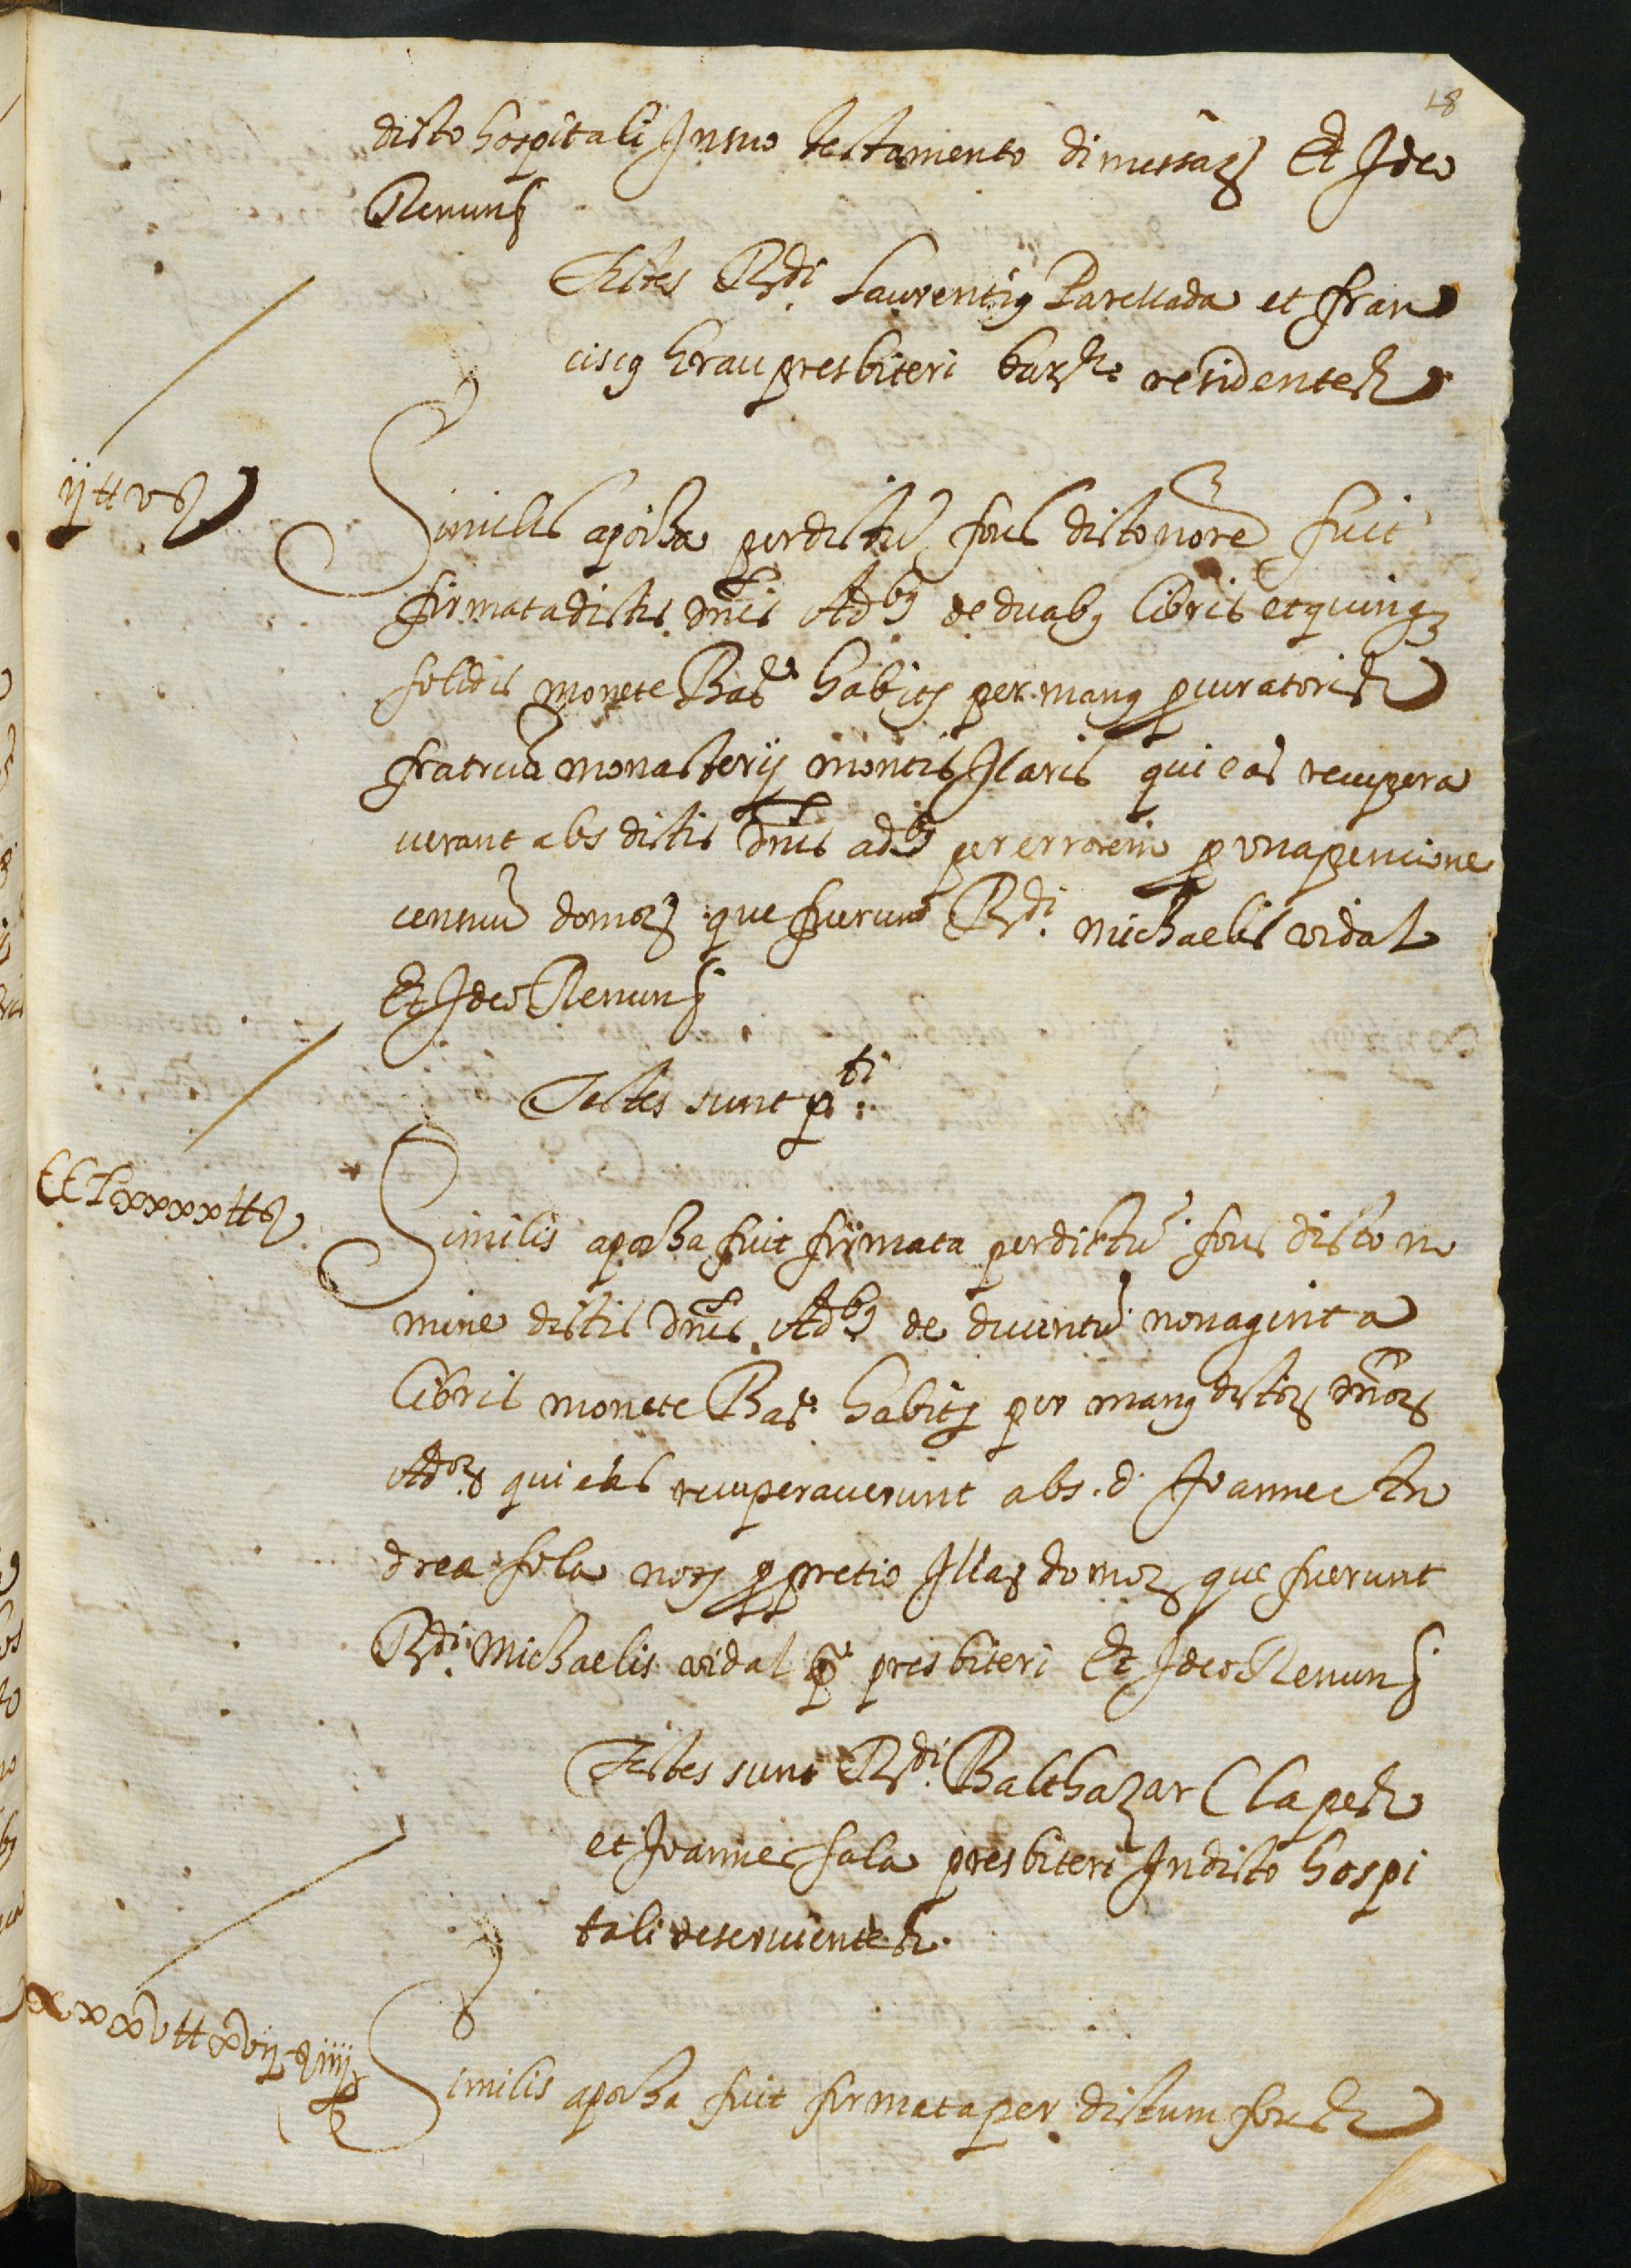 18
dicto hospitali In suo testamento dimissarum Et Ideo
Renuns
Testes Rdi. Laurentius Parellada et fran
ciscus Grau presbiteri barne residentes
ij tt v s
Similis apocha per dictum fous dicto nore fuit
firmata dictis dnis Adbus de duabus libris et quinque
solidis monete Bar habitis per manus procuratoris
fratrum monasterij montis Ilaris qui eas recupera
verant abs dictis dnis adbus per errorem pro vna pencione
censum domorum que fuerunt Rdi. michaelis vidal
Et Ideo Renuns
Testes sunt pti.
CCLxxxx tt s
Similis apocha fuit firmata per dictum fous dicto no
mine dictis dnis Adbus de ducentum nonaginta
libris monete Bar. habitis per manus dictorum dnorum
Adorum qui eas recuperaverunt abs. d. Joanne An
drea sola nots pro pretio Illarum domorum que fuerunt
Rdi. Michaelis vidal q° presbiteri Et Ideo Renuns
Testes sunt Rdi. Balthazar Clapes
et Joannes sala presbiteri In dicto hospi
tali deseruientes.
xxxv tt xvij s iiij
Similis apocha fuit firmata per dictum fous